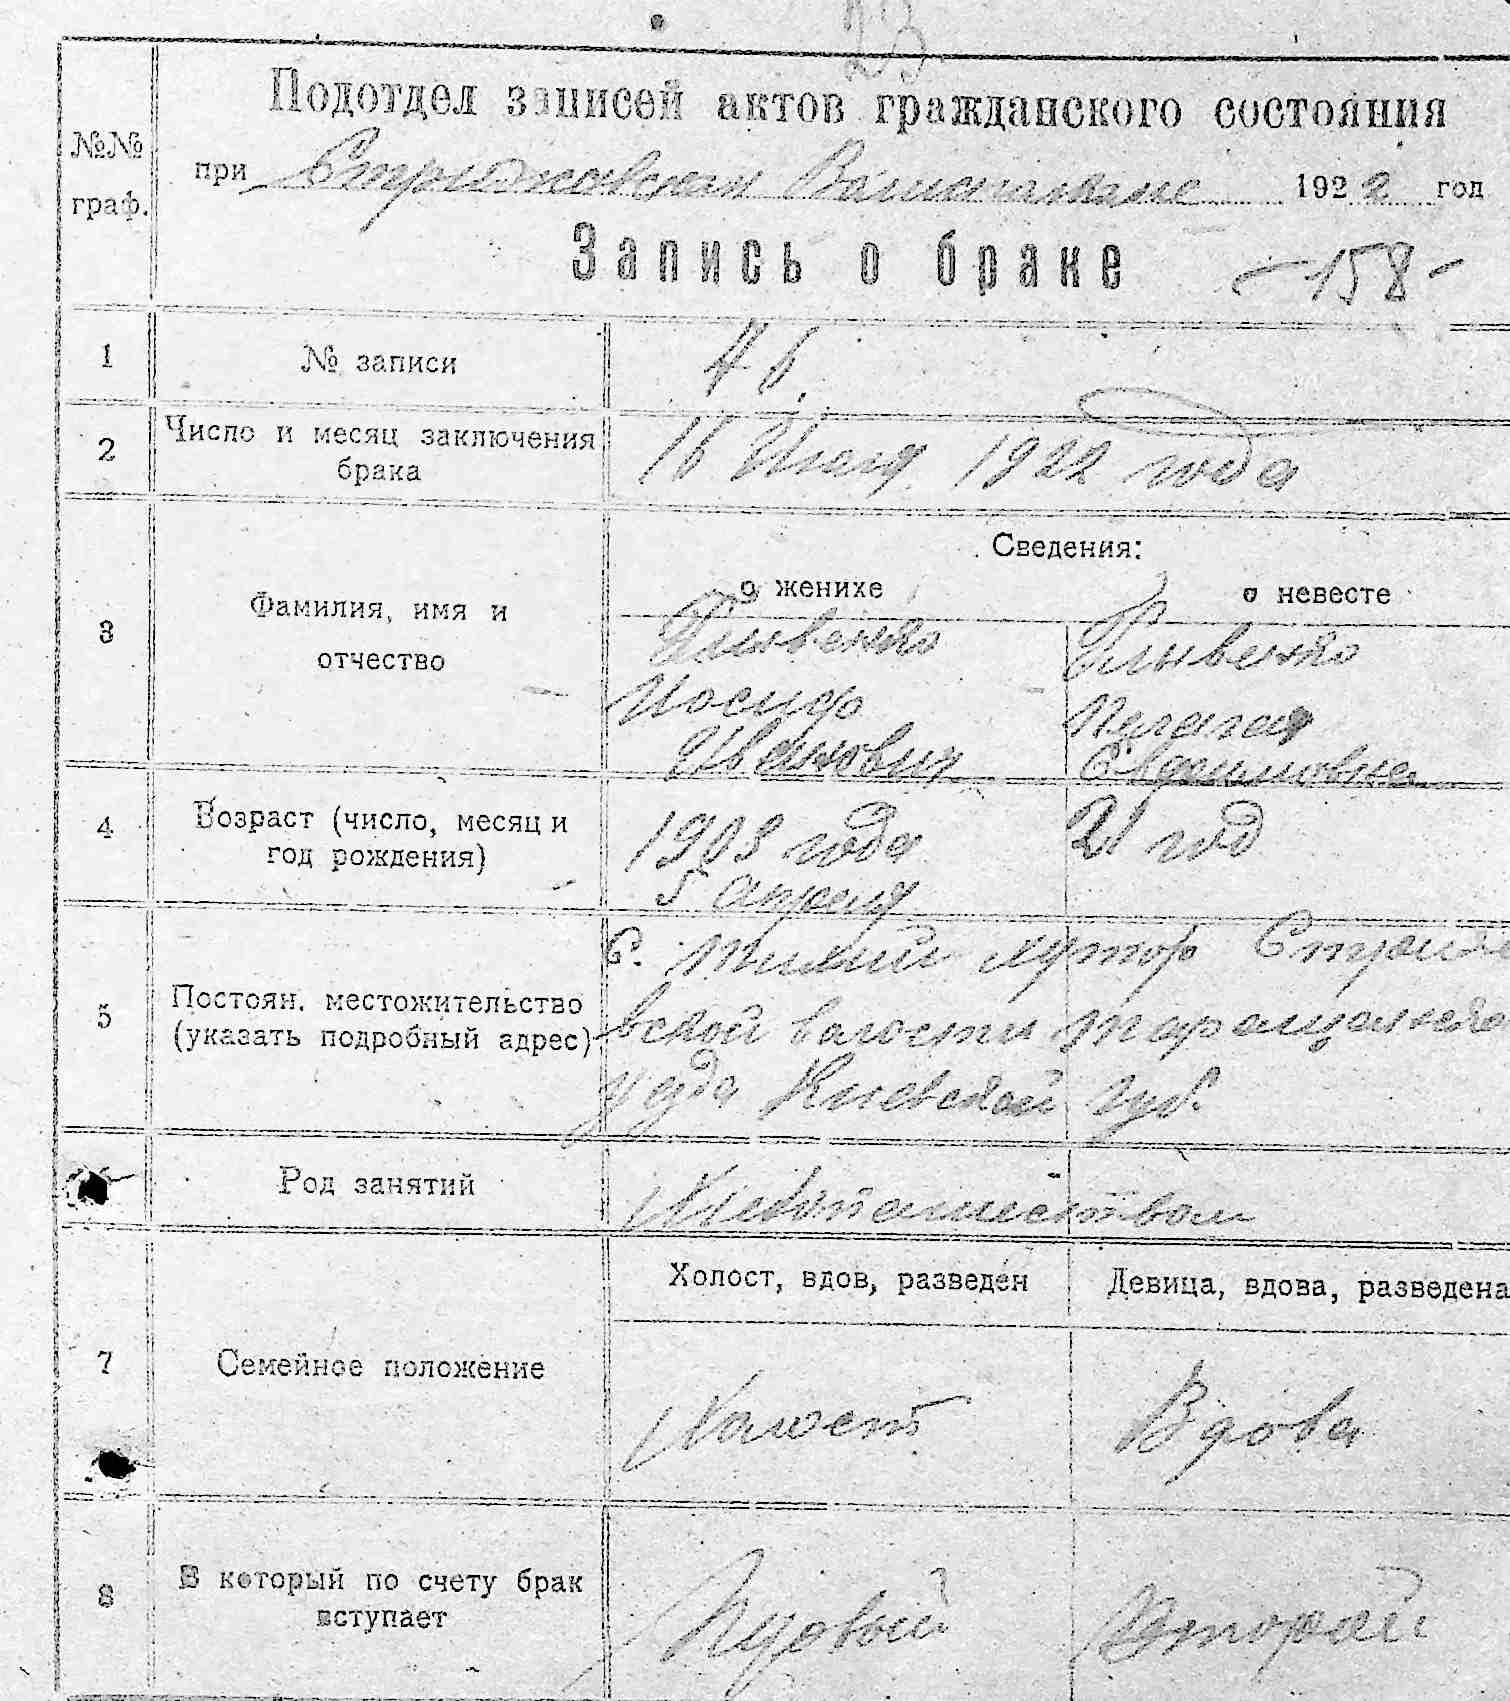 23
Подотдел записей актов гражданского состояния
№№
граф.
при Стрижовской 1922 год
Запись о браке -158-
1 № записи 46
2 Число и месяц заключения
брака
16 1922 года
Сведения:
о женихе о невесте
3 Фамилия, имя и
отчество
Иосиф
Иванович
Пелагея
Евдокимовна
4 Возраст (число, месяц и
год рождения)
1903 года 21 год
5 апреля
5 Постоян. местожительство
(указать подробный адрес)
с. Тихий хутор Стриж
вской волости Таращанско
уезда Киевской губ.
Род занятий Хлебопашеством
7 Семейное положение
Холост, вдов, разведен Девица, вдова, разведена
Холост Вдова
8 В который по счету брак
вступает
Первый Второй